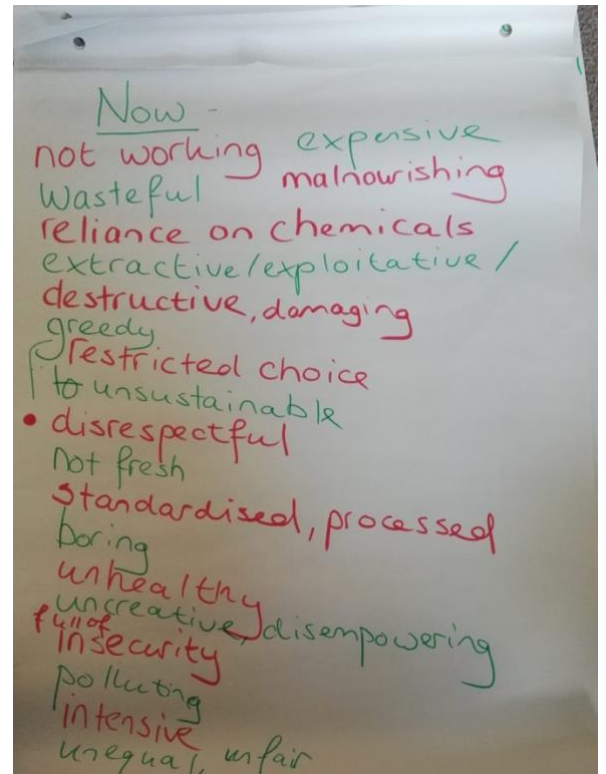 Now -
not working expensive
wasteful malnourishing
reliance on chemicals
extractive/exploitative/
destructive, damaging
greedy
restricted choice
to unsustainable
• disrespectful
not fresh
standardised, processed
boring
unhealthy
uncreative, disempowering
full of
insecurity
polluting
intensive
unequal, unfair